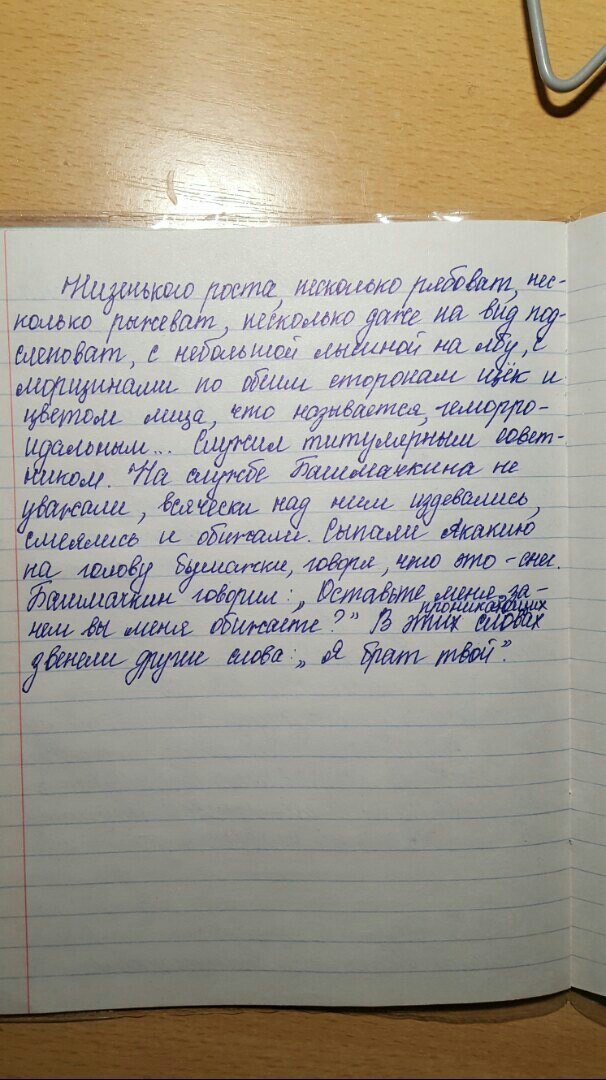 Низенького роста, несколько рябоват, нес-
колько рыжеват, несколько даже на вид под-
слеповат, с небольшой лысиной на лбу, с
морщинами по обеим сторонам щёк и
цветом лица, что называется, геморро-
идальным... Служил титулярным совет-
ником. На службе Башмачкина не
уважали, всячески над ним издевались,
смеялись и обижали. Сыпали Акакию
на голову бумажки, говоря, что это - снег.
Башмачкин говорил: „Оставьте меня, за-
чем вы меня обижаете?" В этих проникающих словах
звенели другие слова: „Я брат твой".